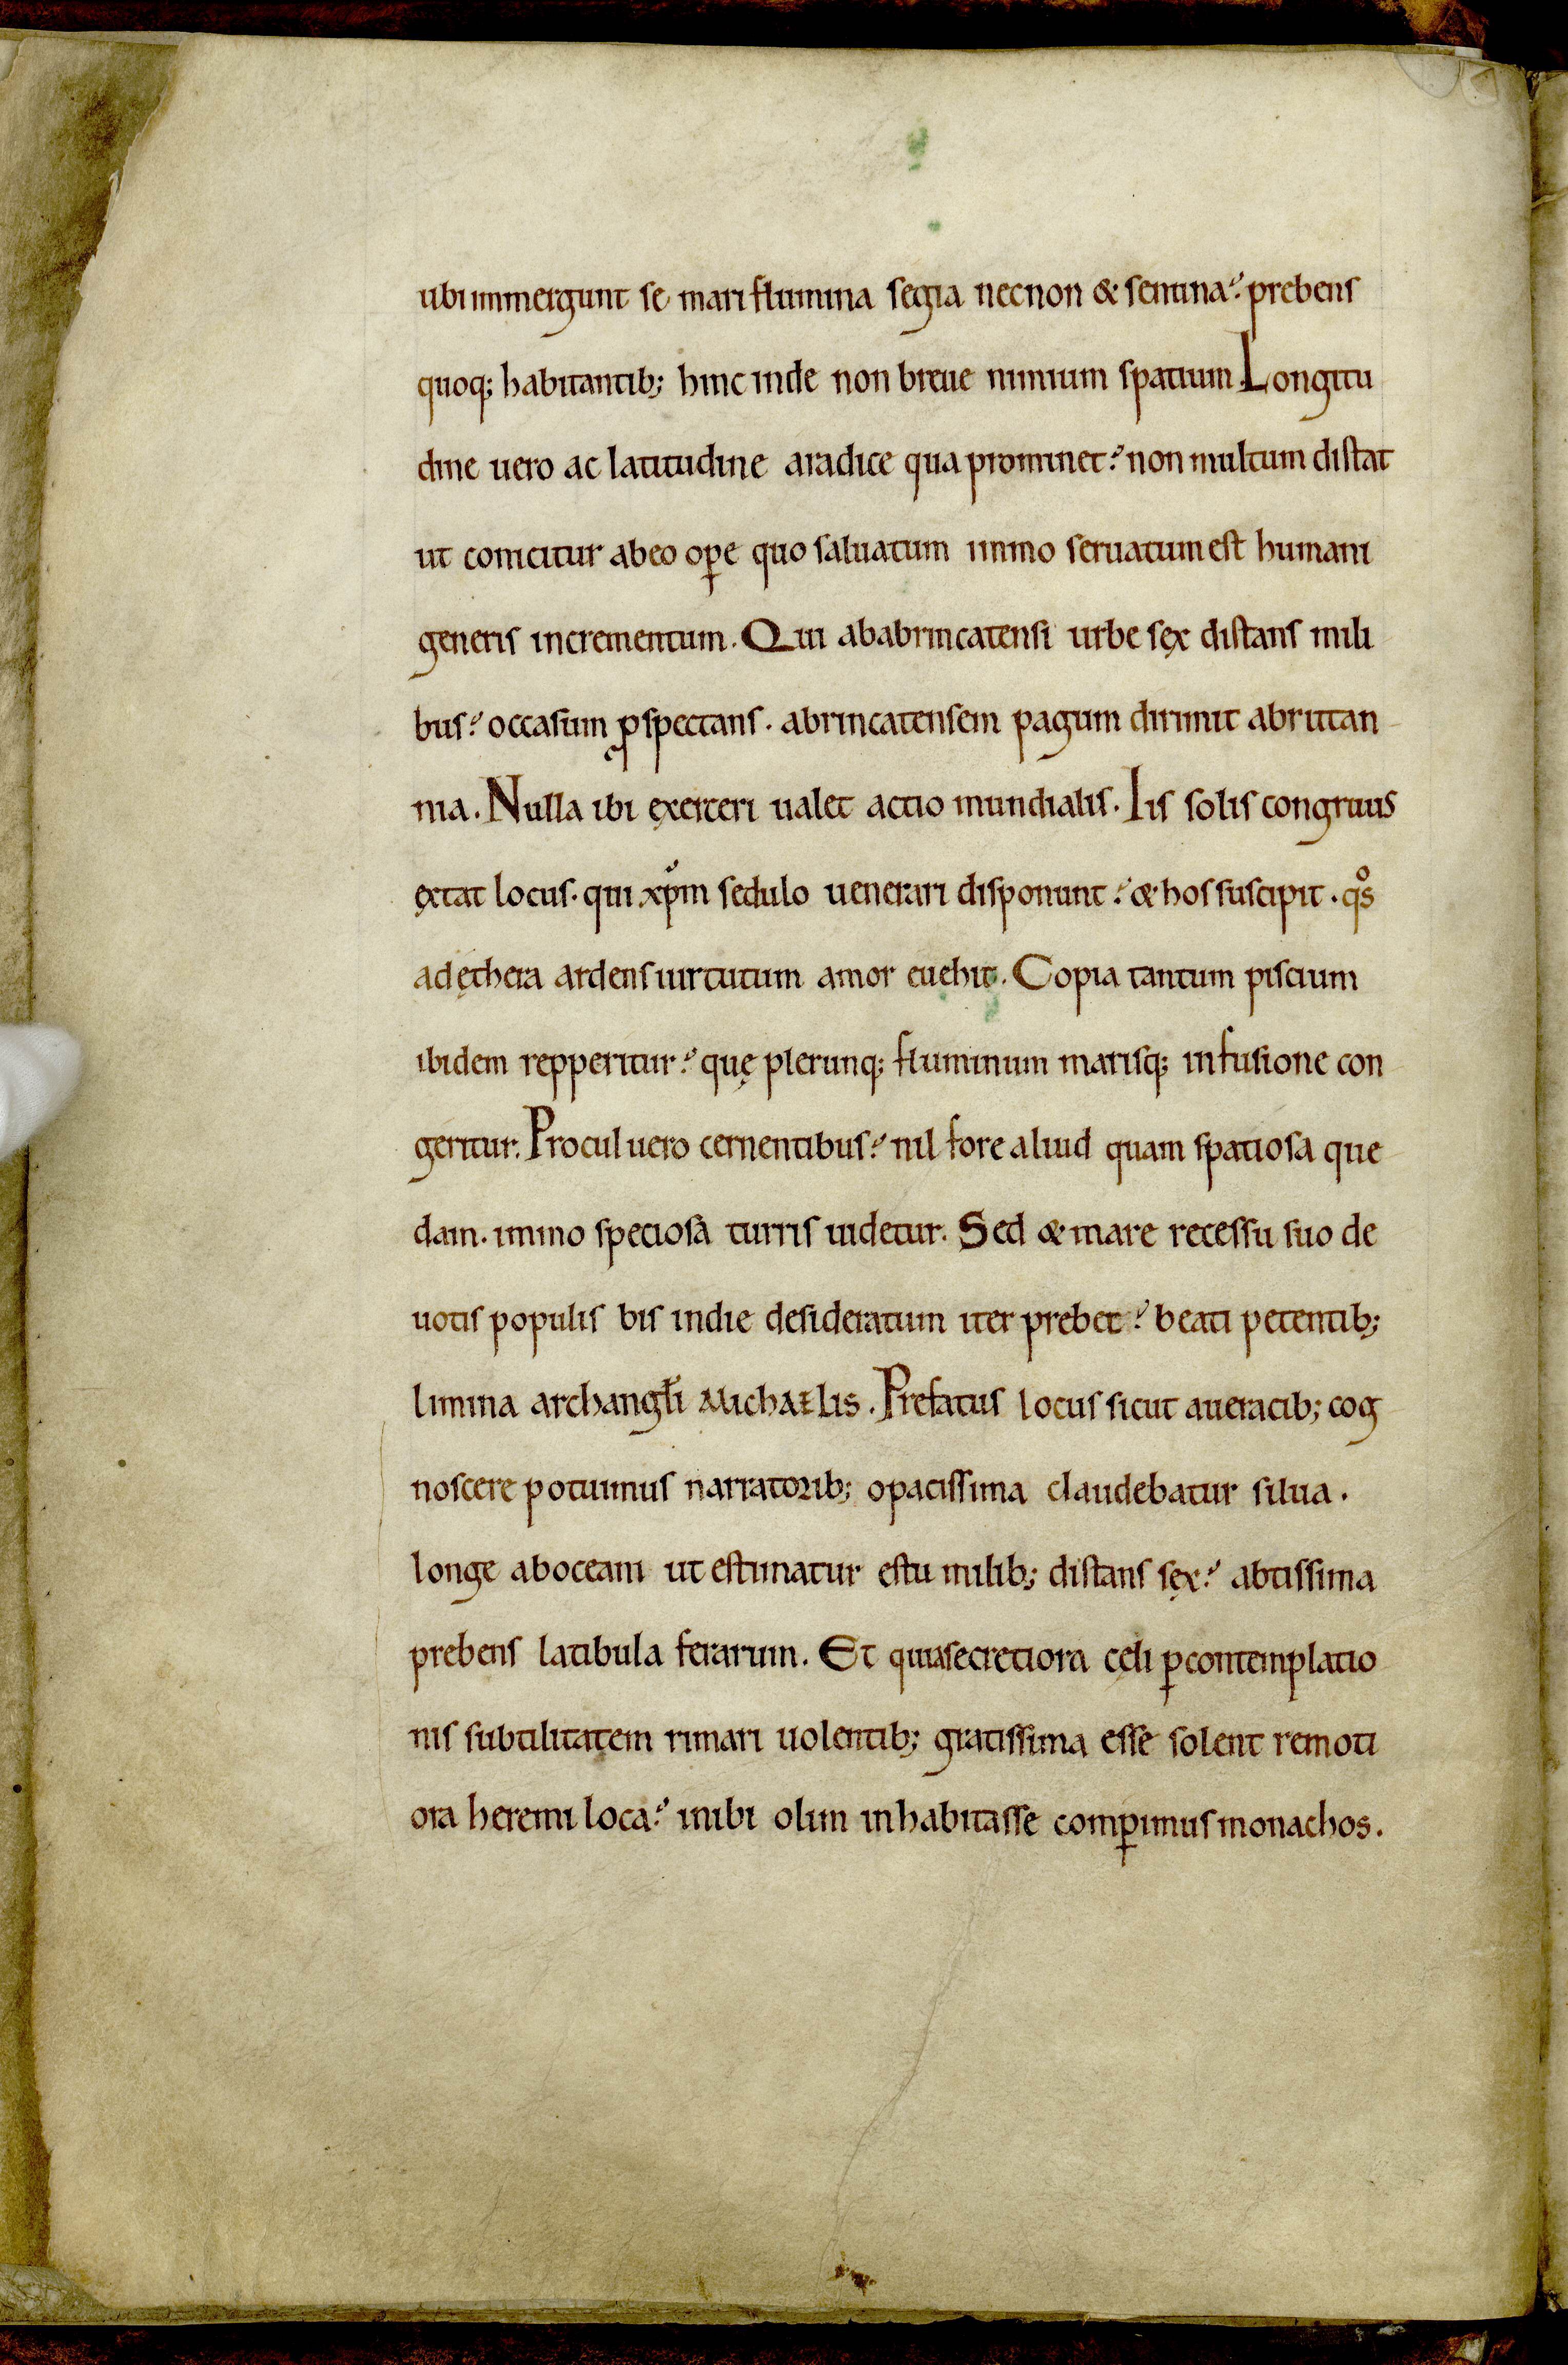 ubi immergunt se mari flumina segia necnon & senuna? prebens
quoq; habitantib; hinc inde non breue nimium spatium. Longitu
dine uero ac latitudine aradice qua prominet? non multum distat
ut conicitur abeo oꝑe quo saluatum immo seruatum est humani
generis incrementum. Qui ababrincatensi urbe sęx distans mili
bus? occasum ꝓspectans. abrincatensem pagum dirimit abrittan
nia. Nulla ibi ęxerceri ualet actio mundialis. Iis solis congruus
ęxtat locus. qui xp̄m sedulo uenerari disponunt? & hos suscipit. qͦs
adęthera ardens uirtutum amor euehit. Copia tantum piscium
ibidem repperitur? quę plerunq; fluminum marisq; infusione con
geritur. Procul uero cernentibus? nil fore aliud quam spatiosa que
dam. immo speciosa turris uidetur. Sed & mare recessu suo de
uotis populis bis indie desideratum iter prebet? beati petentib;
limina archangłi Michaelis. Prefatus locus sicut aueracib; cog
noscere potuimus narratorib; opacissima claudebatur silua.
longe aboceani ut estimatur estu milib; distans sęx? abtissima
prebens latibula ferarum. Et quiasecretiora cęli ꝑcontemplatio
nis subtilitatem rimari uolentib; gratissima esse solent remoti
ora heremi loca? inibi olim inhabitasse comꝑimus monachos.